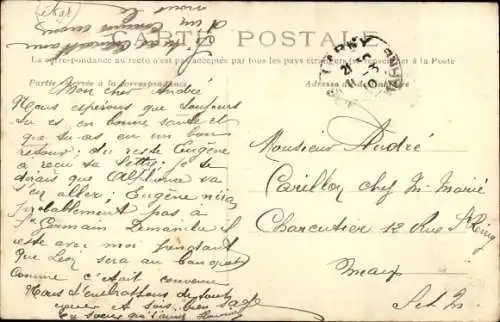 état
CARTE POSTALE
La correspondance au recto n'est pas acceptée par tous les pays étrangers (se renseigner à la Poste
Partie réservée à la correspondance
Adresse du destinataire
Mon cher André
Nous espérons que toujours
tu es en bonne santé et
que tu as eu un bon
retour; du reste Eugène
a reçu ta lettre; je te
dirais que Alphonse va
s'en aller; Eugène n'ira
probablement pas à
St Germain Demanche il
reste avec moi pendant
que Léon sera au banquet
comme c'était convenu
Nous t'embrassons de tout
coeur et sois bien sage
Ta soeur qui t'aime
Monsieur André
Carillon chez M. Marié
Charcutier 12 Rue St Remy
Meaux
S et M.